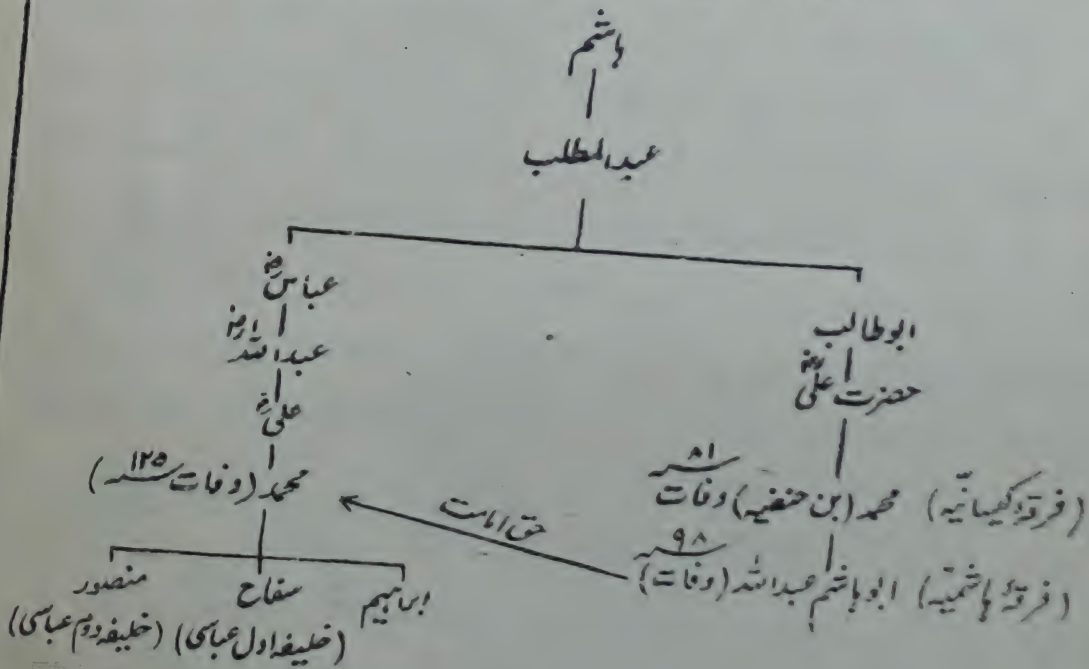 ہاشم
عبدالمطلب
ابوطالب
حضرت علیؓ
(فرقہ کیسانیّہ) محمد (بن حنفیہ) وفات ۸۱ھ
(فرقہ ہاشمیّہ) ابوہاشم عبداللہ (وفات) ۹۸ھ
حق امامت
عباسؓ
عبداللہؓ
علیؒ
محمد (وفات ۱۲۵ھ)
ابراہیم
سفاح
(خلیفہ اول عباسی)
منصور
(خلیفہ دوم عباسی)